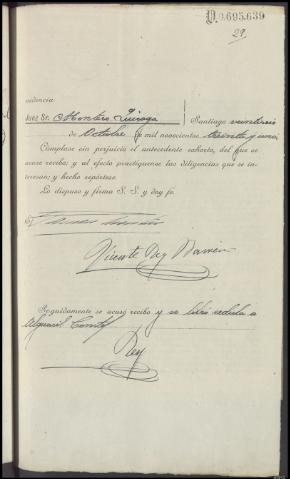 D.9.695.639
29.
videncia
Juez Sr. Montero Quiroga Santiago
de Octubre de mil novecientos treinta y uno
Cumplase sin perjuicio el antecedente exhorto, del que se
acuse recibo; y al efecto practíquense las diligencias que se in-
teresan; y hecho repórtese.
Lo dispuso y firma S. S. y doy fe.
Vicente Rey
Seguidamente se acusó recibo y se libró cédula a
Alguacil
Rey